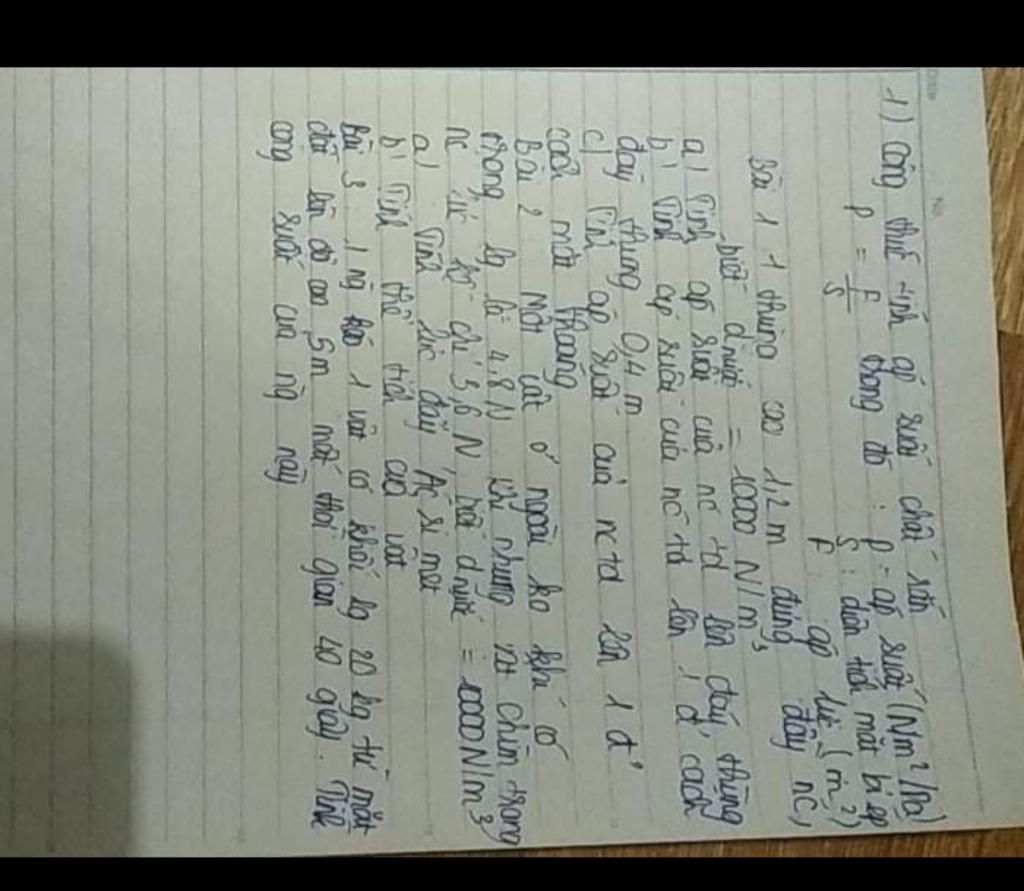 1) Công thức tính áp suất chất rắn
P = F/S trong đó : P = áp suất (N/m²/Pa)
S : diện tích mặt bị ép (m²)
F : áp lực
Bài 1 1 thùng cao 1,2m đựng đầy nc,
biết d nước = 10000 N/m³
a) Tính áp suất của nc td lên đáy thùng
b) Tính áp suất của nc td lên 1 đ cách
đáy thùng 0,4m
c) Tính áp suất của nc td lên 1 đ
cách mặt thoáng
Bài 2 Một vật ở ngoài ko khí có
trong lg là 4,8N. Khi nhúng vật chìm trong
nc lực kế chỉ 3,6 N, biết d nước = 10000N/m³
a) Tính lực đẩy Ác si mét
b) Tính thể tích của vật
Bài 3 1 ng kéo 1 vật có khối lg 20 kg từ mặt
đất lên độ cao 5m mất thời gian 40 giây. Tính
công suất của ng này